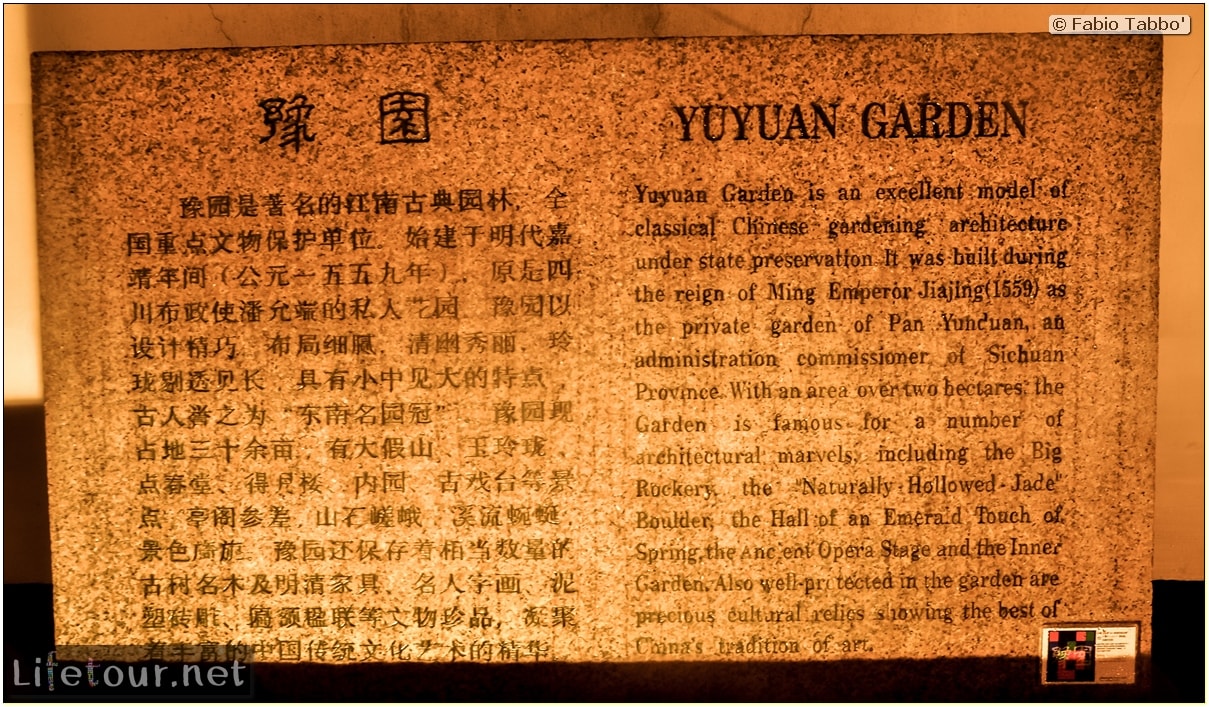 © Fabio Tabbo'
豫園
豫园是著名的江南古典园林，全
国重点文物保护单位，始建于明代嘉
靖年间（公元一五五九年），原是四
川布政使潘允端的私人艺园。豫园以
设计精巧、布局细腻，清幽秀丽、玲
珑剔透见长，具有小中见大的特点，
古人誉之为“东南名园冠”。豫园现
占地三十余亩，有大假山、玉玲珑、
点春堂、得月楼、内园、古戏台等景
点，亭阁参差，山石嵯峨，溪流蜿蜒，
景色旖旎。豫园还保存着相当数量的
古树名木及明清家具、名人字画、泥
塑砖雕、匾额楹联等文物珍品，凝聚
着丰富的中国传统文化艺术的精华。
YUYUAN GARDEN
Yuyuan Garden is an excellent model of
classical Chinese gardening architecture
under state preservation. It was built during
the reign of Ming Emperor Jiajing(1559) as
the private garden of Pan Yunduan, an
administration commissioner of Sichuan
Province. With an area over two hectares, the
Garden is famous for a number of
architectural marvels, including the Big
Rockery, the "Naturally Hollowed-Jade"
Boulder, the Hall of an Emerald Touch of
Spring, the Ancient Opera Stage and the Inner
Garden. Also well-protected in the garden are
precious cultural relics showing the best of
China's tradition of art.
Lifetour.net